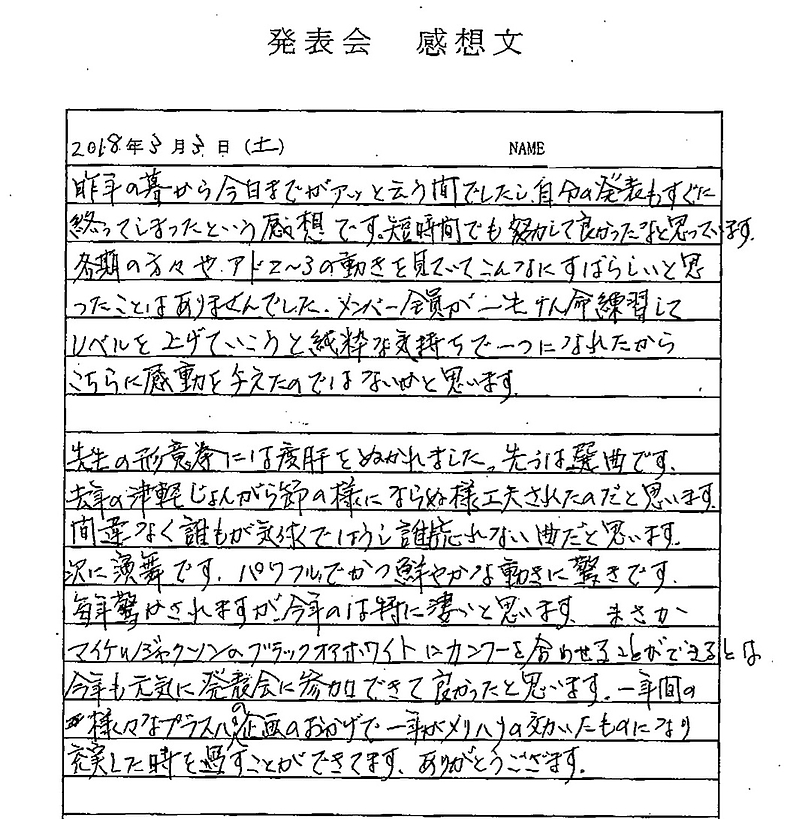 発表会 感想文
2018年3月3日(土) NAME
昨年の暮から今日までがアッと云う間でしたし、自分の発表もすぐに
終ってしまったという感想です。短時間でも努力して良かったなと思っています。
各期の方々や、アド2〜3の動きを見ていてこんなにすばらしいと思
ったことはありませんでした。メンバー全員が一生けん命練習して
レベルを上げていこうと純粋な気持ちで一つになれたから
こちらに感動を与えたのではないかと思います。
先生の形意拳には度肝をぬかれました。先うは選曲です。
去年の津軽じょんがら節の様にならぬ様工夫されたのだと思います。
間違なく誰もが気球ではうし誰読れない曲だと思います。
次に演舞です。パワフルでかつ鮮やかな動きに驚きです。
毎年驚かされますが、今年のは特に凄いと思います。まさか
マイケルジャクソンのブラックオアホワイトにカンフーを合わせることができるとは
今年も元気に発表会に参加できて良かったと思います。一年間の
様々なプラスハの企画のおかげで一年がメリハリの効いたものになり
充実した時を過すことができてます、ありがとうございます。